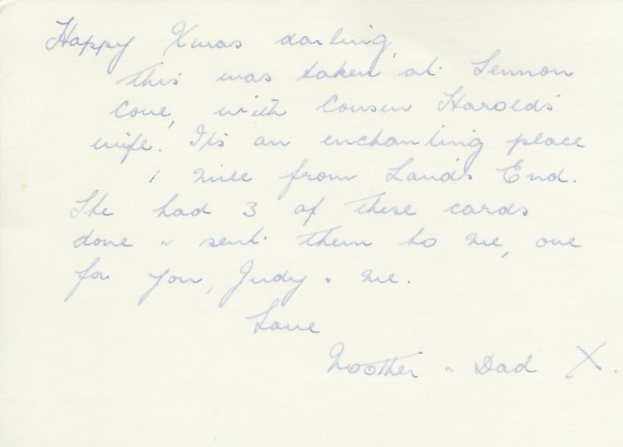 Happy Xmas darling,
this was taken at Sennon
Cove, with Cousin Harold's
wife. It's an enchanting place
1 mile from Land's End.
She had 3 of these cards
done & sent them to me, one
for you, Judy & me.
Love
Mother & Dad X.